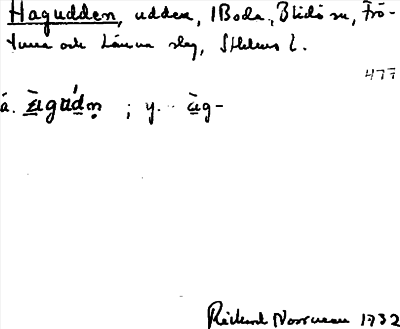 Hagudden, udden, 1 Boda, Blidö sn, Frö-
tuna och Länna slg, Sthlms l.
477
ä. àgudn ; y. àg-
Rickard Norrman 1932